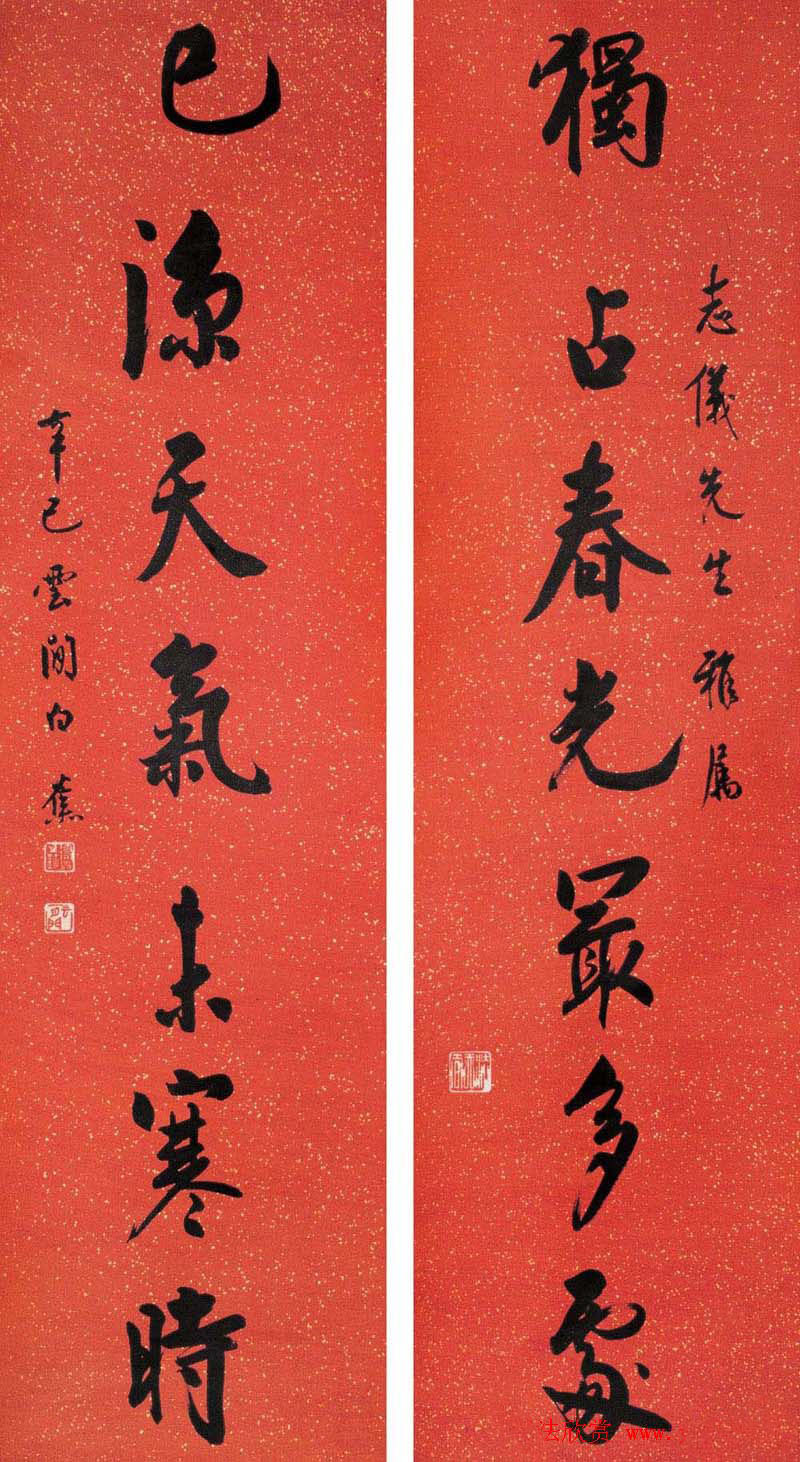 志儀先生雅属
獨占春光最多處
已涼天氣未寒時
辛巳雲間白蕉
法欣赏 www.